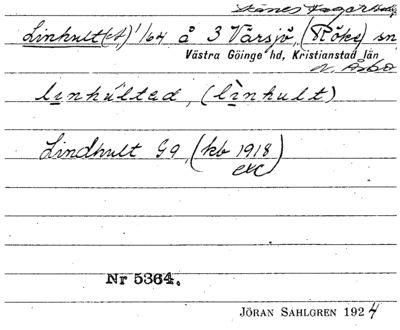 Linhult(et) 1/64 å 3 Vårsjö, (Röke) sn
Västra Göinge hd, Kristianstad län
N. Åsbo
linhultad, (linhult)
Lindhult G9, (kb 1918)
exc
Nr 5364.
JÖRAN SAHLGREN 1924